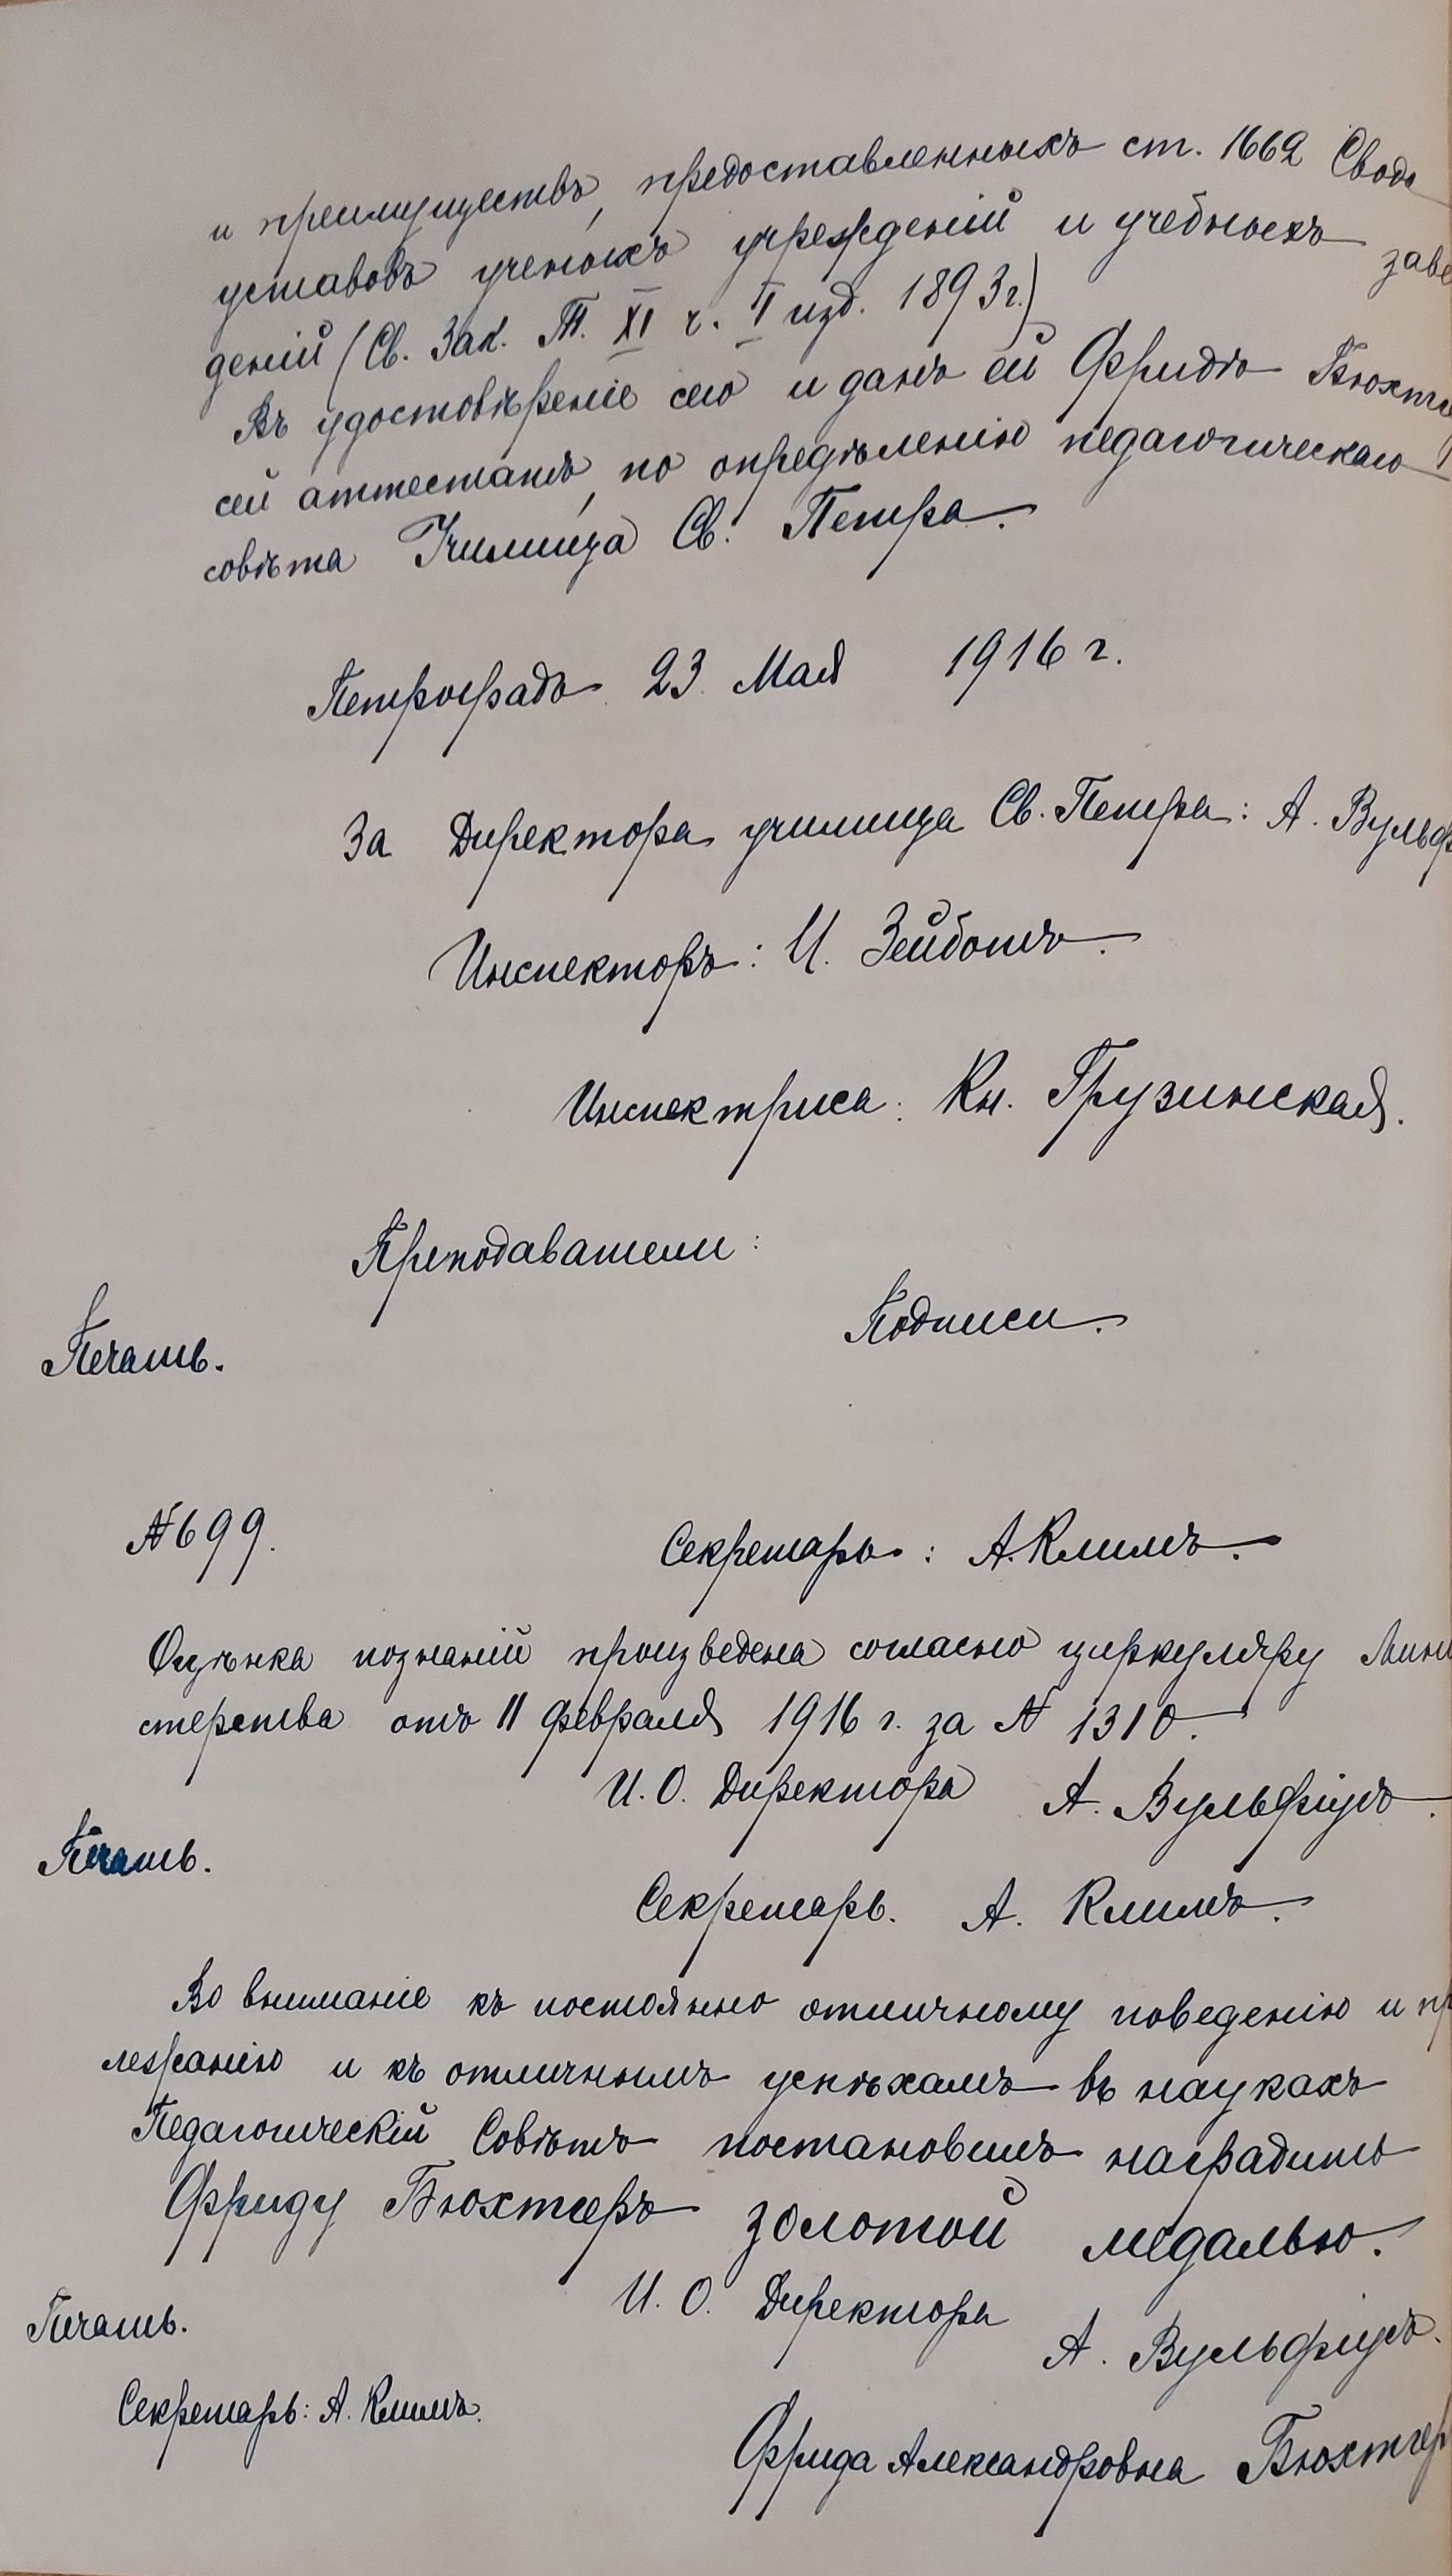 и преимуществъ, предоставленныхъ ст. 1662 Свода
уставовъ ученыхъ учрежденій и учебныхъ заве
деній (Св. Зак. Т. XI ч. I изд. 1893 г.)
Въ удостовѣреніе сего и данъ ей Фридѣ Бюхтгер
сей аттестатъ, по опредѣленію педагогическаго
совѣта Училища Св. Петра.
Петроградъ 23 Мая 1916 г.
За Директора училища Св. Петра: А. Вульф
Инспекторъ: И. Зейботъ.
Инспектриса: Кн. Грузинская.
Преподаватели:
Подписи.
Печать.
№ 699.
Секретарь: А. Климъ.
Оцѣнка познаній произведена согласно циркуляру Мини
стерства отъ 11 февраля 1916 г. за № 1310.
И. О. Директора А. Вульфіусъ.
Печать.
Секретарь. А. Климъ.
Во вниманіе къ постоянно отличному поведенію и пр
лежанію и къ отличнымъ успѣхамъ въ наукахъ
Педагогическій Совѣтъ постановилъ наградить
Фриду Бюхтгеръ золотой медалью.
И. О. Директора
А. Вульфіусъ.
Печать.
Секретарь: А. Климъ.
Фрида Александровна Бюхтгер